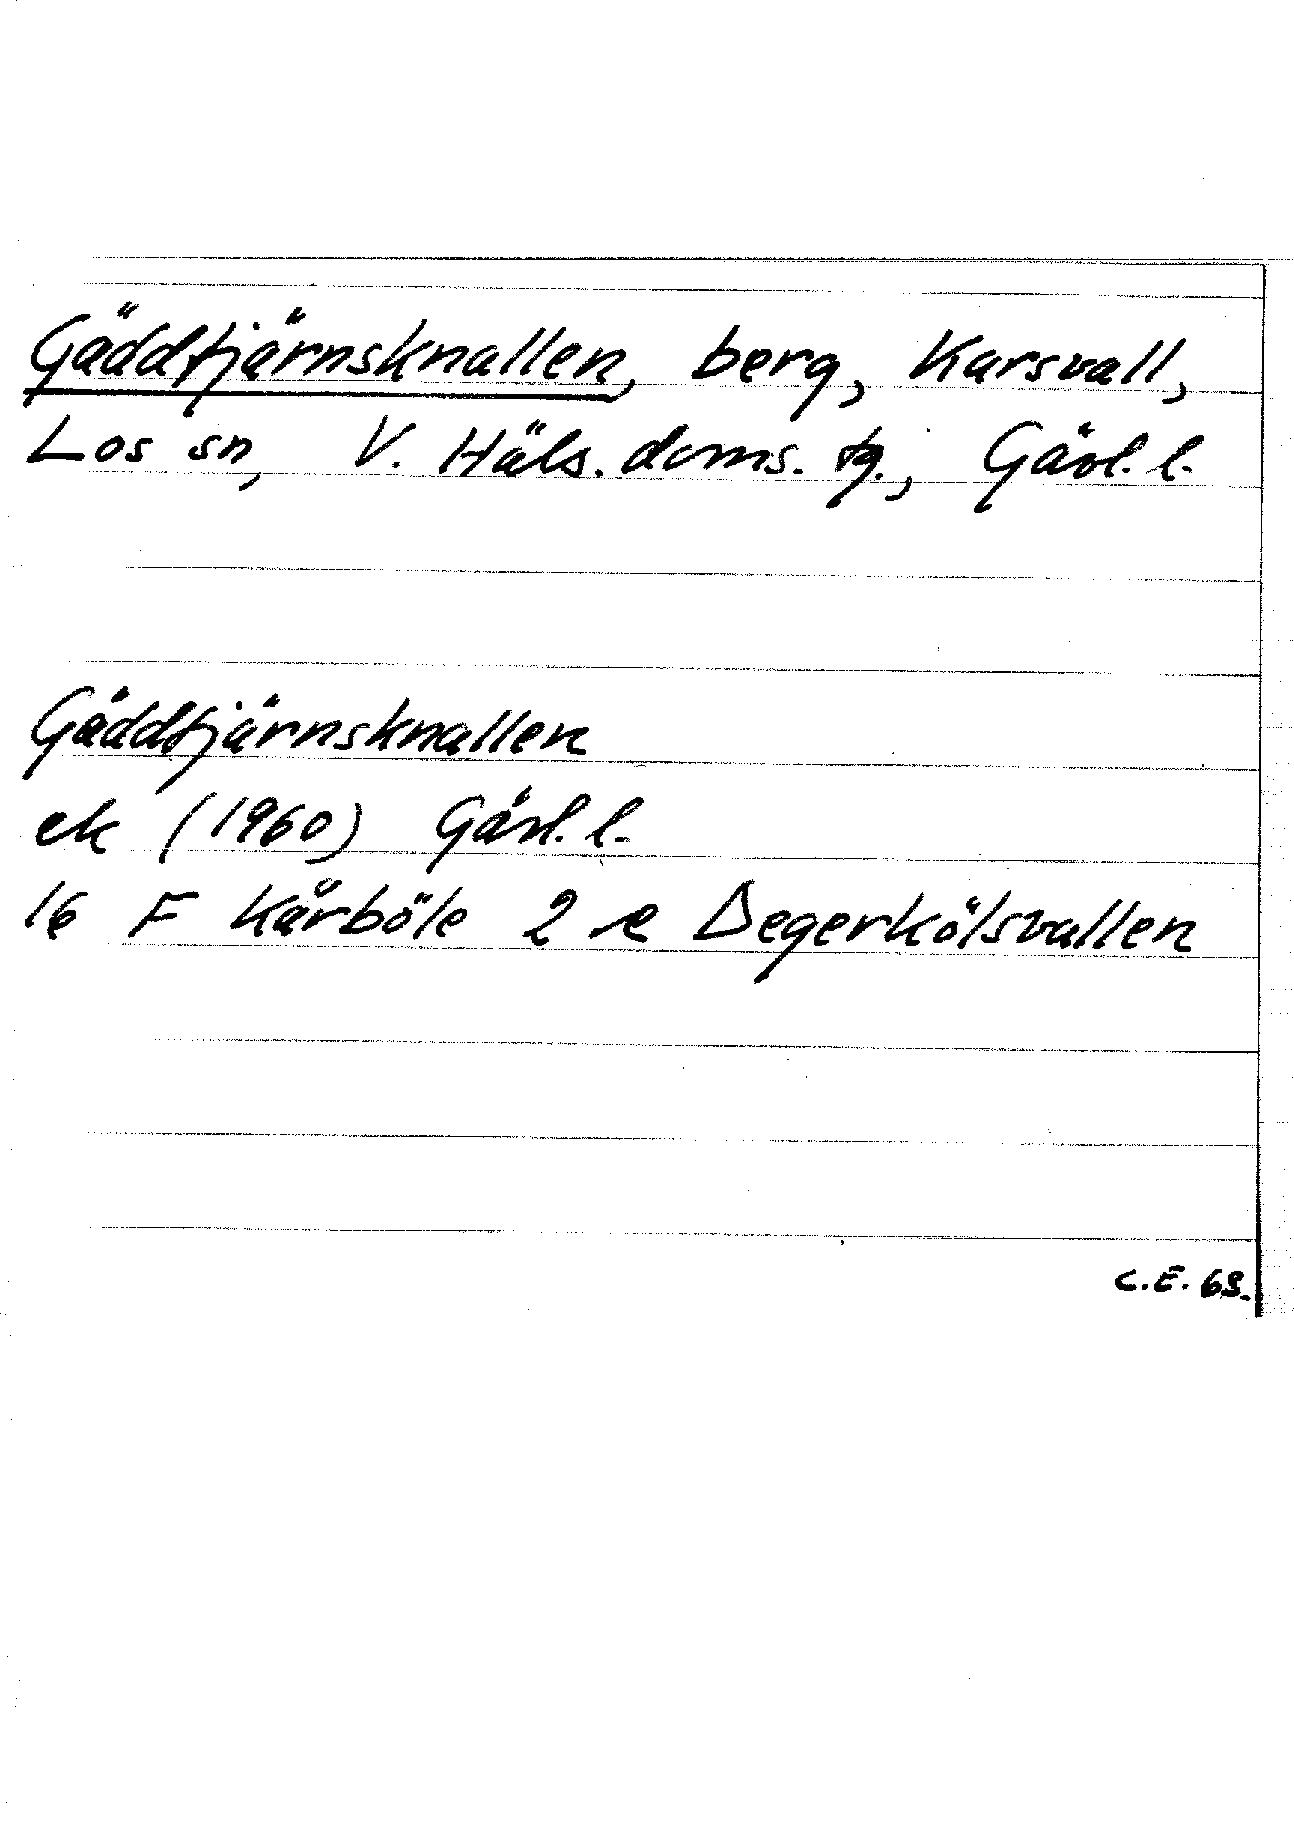 Gäddtjärnsknallen, berg, Karsvall,
Los sn, V. Häls. doms. tg., Gävl. l.
Gäddtjärnsknallen
ek (1960) Gävl. l.
16 F Kårböle 2 e Degerkölsvallen
C.E. 69.